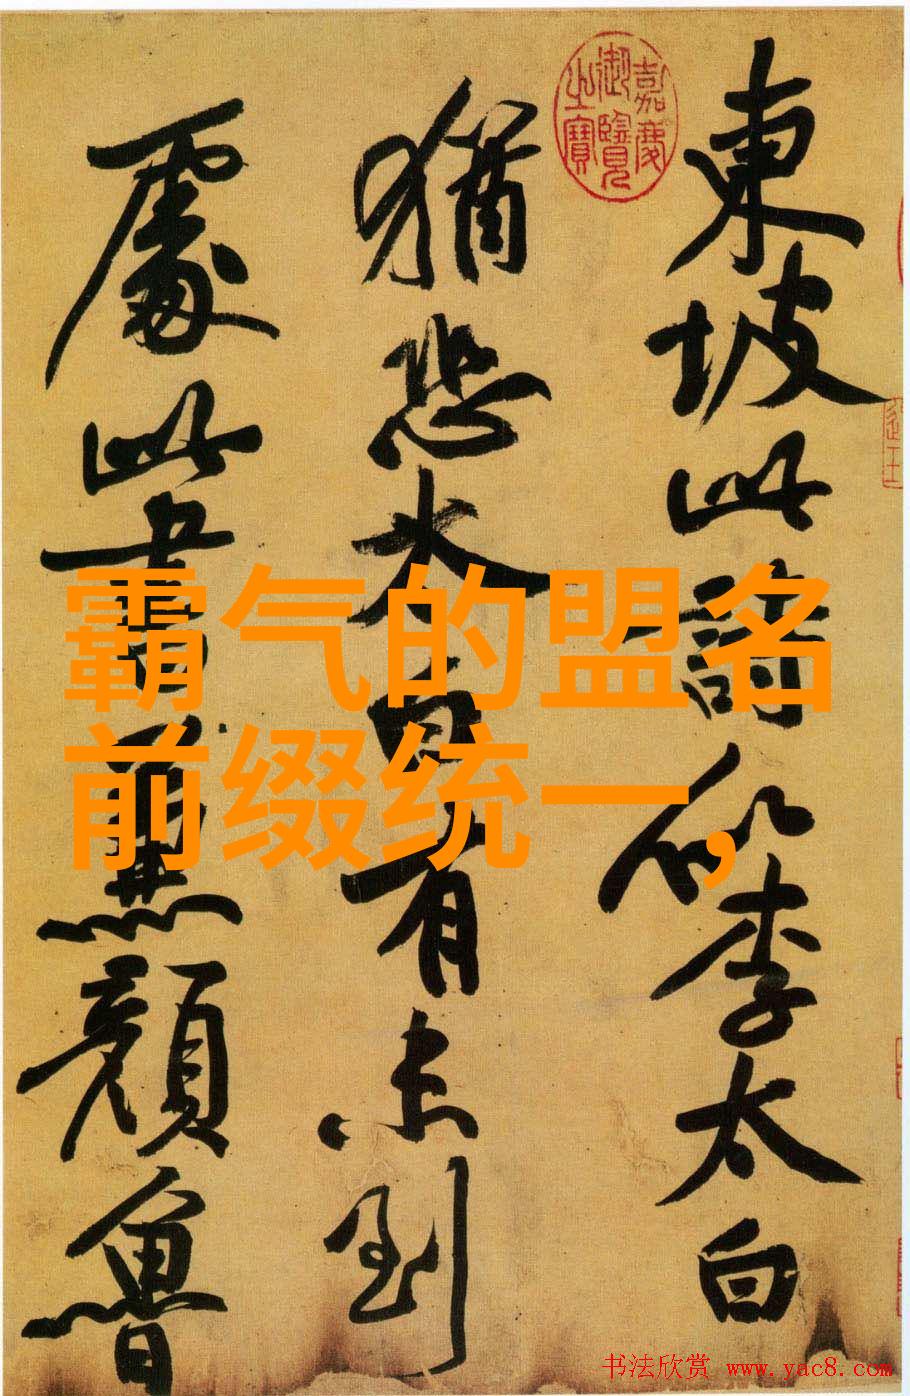 東坡此詩似李太白
猶恐太白有未到
處此書兼顏魯
嘉慶
御覽
之寶
霸气的盟名
前缀统一,
书法欣赏 www.yac8.com